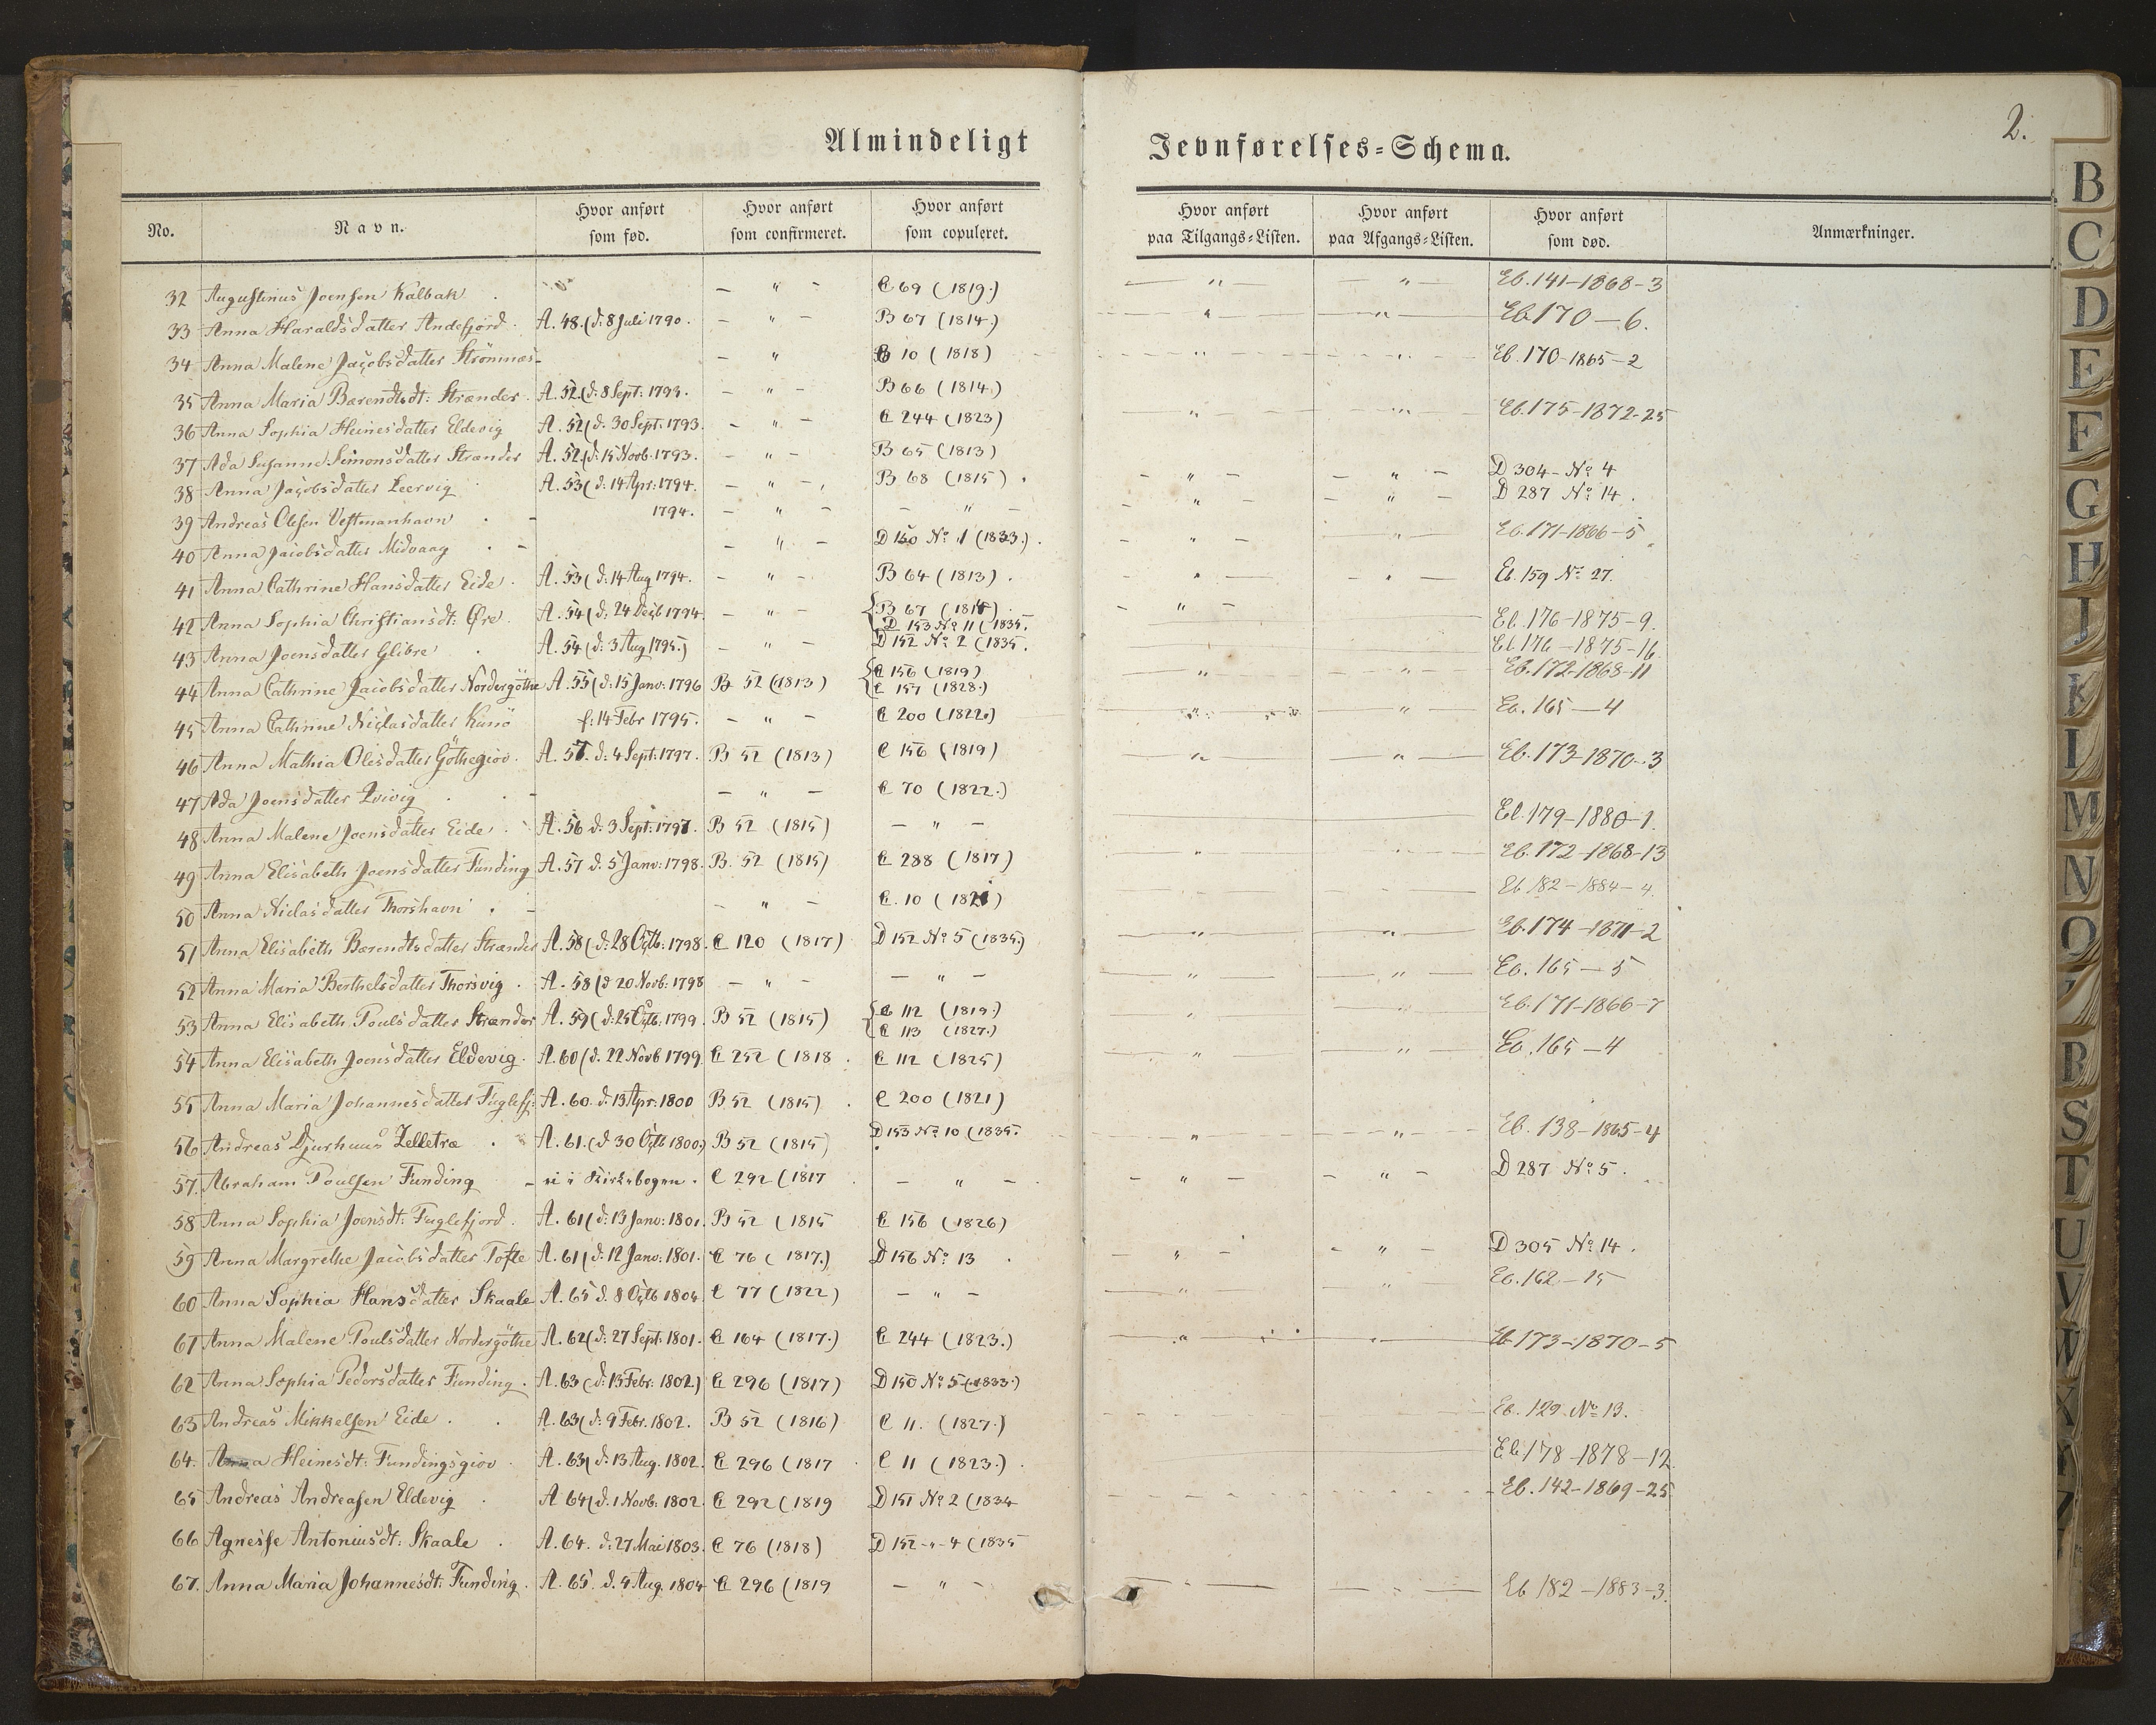 Almindeligt Jevnførelses-Schema.
2.
No. Navn. Hvor anført som fød. Hvor anført som confirmeret. Hvor anført som copuleret. Hvor anført paa Tilgangs-Listen. Hvor anført paa Afgangs-Listen. Hvor anført som død. Anmærkninger.
32 Augustinus Joensen Kalbak . - " - C 69 (1819.) — " — — " — Eb. 141-1868-3
33 Anna Haraldsdatter Andefjord. A. 48. (d: 8 Juli 1790. - " - B 67 (1814.) — " — — " — Eb 170 — 6.
34 Anna Malene Jacobsdatter Strömnæs - - " B 10 (1818) - " - - " - Eb. 170-1865-2
35 Anna Maria Bærendtsdt: Strænder. A. 52. (d: 8 Sept: 1793. - " - B 66 (1814.)
36 Anna Sophia Heinesdatter Eldevig A. 52 (d. 30 Sept. 1793. - " - C 244 (1823) — " — — " — Eb. 175-1872-25
37 Ada Susanne Simonsdatter Strænder A. 52 (d: 15 Novb. 1793. - " - B 65 (1813)
38 Anna Jacobsdatter Leervig A. 53 (d: 14 Apr: 1794. - " - B 68 (1815) . - " - - " - D 304 - No 4
39 Andreas Olesen Vestmanhavn . - 1794. - " - - " - - " - - " - D 287 No 14.
40 Anna Jacobsdatter Midvaag . - - " - D 150 No 1 (1833.) . - " - - " - Eb. 171-1866-5
41 Anna Cathrine Hansdatter Eide . A. 53 (d: 14 Aug 1794. - " - B 64 (1813) . - " - - " - Eb. 159 No 27.
42 Anna Sophia Christiansdt: Øre . A. 54 (d: 24 Decb 1794. - " - { B 67 (1814) . - " - Eb. 176-1875-9.
D 153 No 11 (1835.
43 Anna Joensdatter Glibre . A. 54 (d: 3 Aug 1795.) - " - D 152 No 2 (1835. Eb 176-1875-16
44 Anna Cathrine Jacobsdatter Nordergöthe A. 55 (d: 15 Janv. 1796 B 52 (1813) { C 156 (1819) — " — — " — Eb. 172-1868-11
C 157 (1828.)
45 Anna Cathrine Niclasdatter Kunö f: 14 Febr 1795. - " - C 200 (1822.) — " — — " — Eb. 165 — 4
46 Anna Mathia Olesdatter Göthegiov. A. 57. d: 4 Sept: 1797. B 52 (1813) C 156 (1819) — " — — " — Eb. 173-1870-3
47 Ada Joensdatter Qvivig . . - - " - C 70 (1822.)
48 Anna Malene Joensdatter Eide . A. 56 d: 3 Sept: 1797. B 52 (1815) - " - Eb. 179-1880-1.
49 Anna Elisabeth Joensdatter Funding A. 57 d. 5 Janv: 1798. B. 52 (1815) C 288 (1817) — " — — " — Eb. 172-1868-13
50 Anna Niclasdatter Thorshavn . - - " - C. 10 (1821) Eb 182-1884-4.
51 Anna Elisabeth Bærendtsdatter Strænder A. 58 (d: 28 Octb: 1798. C 120 (1817) D 152 No 5 (1835.) — " — — " — Eb. 174-1871-2
52 Anna Maria Berthelsdatter Thorsvig . A. 58 (d 20 Novb: 1798 - " - - " - — " — — " — Eb. 165 — 5
53 Anna Elisabeth Poulsdatter Strænder A. 59 (d: 25 Octb: 1799. B 52 (1815) { C 112 (1819.) — " — — " — Eb. 171-1866-7
C 113 (1827.)
54 Anna Elisabeth Joensdatter Eldevig. A. 60 (d. 22 Novb 1799. C 252 (1818 . C 112 (1825) — " — — " — Eb. 165 — 4
55 Anna Maria Johannesdatter Fuglefj: A. 60. d. 13 Apr: 1800 B 52 (1815) . C 200 (1821)
56 Andreas Djurhuus Zelletræ . A. 61. (d 30 Octb 1800.) B 52 (1815) D 153 No 10 (1835. — " — — " — Eb. 138-1865-4
57. Abraham Poulsen Funding - ei i Kirkebogen . C 292 (1817 . - " - . - " - - " - D 287 No 5.
58 Anna Sophia Joensdt: Fuglefjord. A. 61 (d: 13 Janv: 1801. B 52 (1815 C 156 (1826)
59 Anna Margrethe Jacobsdatter Tofte A. 61 (d: 12 Janv: 1801. C 76 (1817.) D 156 No 13 . - " - - " - D 305 No 14.
60 Anna Sophia Hansdatter Skaale A. 65 d. 8 Octb 1804 C 77 (1822) - " - — " — — " — Eb. 162-15
61 Anna Malene Poulsdatter Nordergöthe A. 62 (d: 27 Sept. 1801. C 164 (1817.) C 244 (1823.) — " — — " — Eb. 173-1870-5
62 Anna Sophia Pedersdatter Funding . A. 63 (d: 13 Febr: 1802) C 296 (1817) D 150 No 5 (1833.)
63 Andreas Mikkelsen Eide . . A. 63 (d: 9 Febr. 1802. B 52 (1816) C 11. (1827.) Eb. 129 No 13.
64. Anna Heinesdt: Fundingsgiov . A. 63 (d: 13 Aug. 1802. C 296 (1817 . C 11 (1823.) . Eb. 178-1878-12
65 Andreas Andreasen Eldevig . A 64 (d. 1 Novb: 1802. C 292 (1819 D 151 No 2 (1834 Eb. 142-1869-25
66 Agnesse Antoniusdt: Skaale . A. 64. d: 27 Mai 1803. C 76 (1818) D 152 - " - 4 (1835
67. Anna Maria Johannesdt: Funding. A. 65. d. 4 Aug. 1804 C 296 (1819 - " - — " — — " — Eb 182-1883-3.
B
C
D
E
F
G
H
J
K
L
M
N
O
R
S
T
U
V
W
X
Y
Z